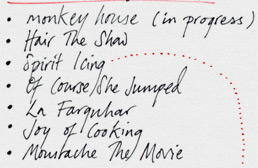 • monkey house (in progress)
• Hair The Shad
• Spirit Icing
• Of Course/She Jumped
• La Farquhar
• Joy of Cooking
• Moustache The Movie